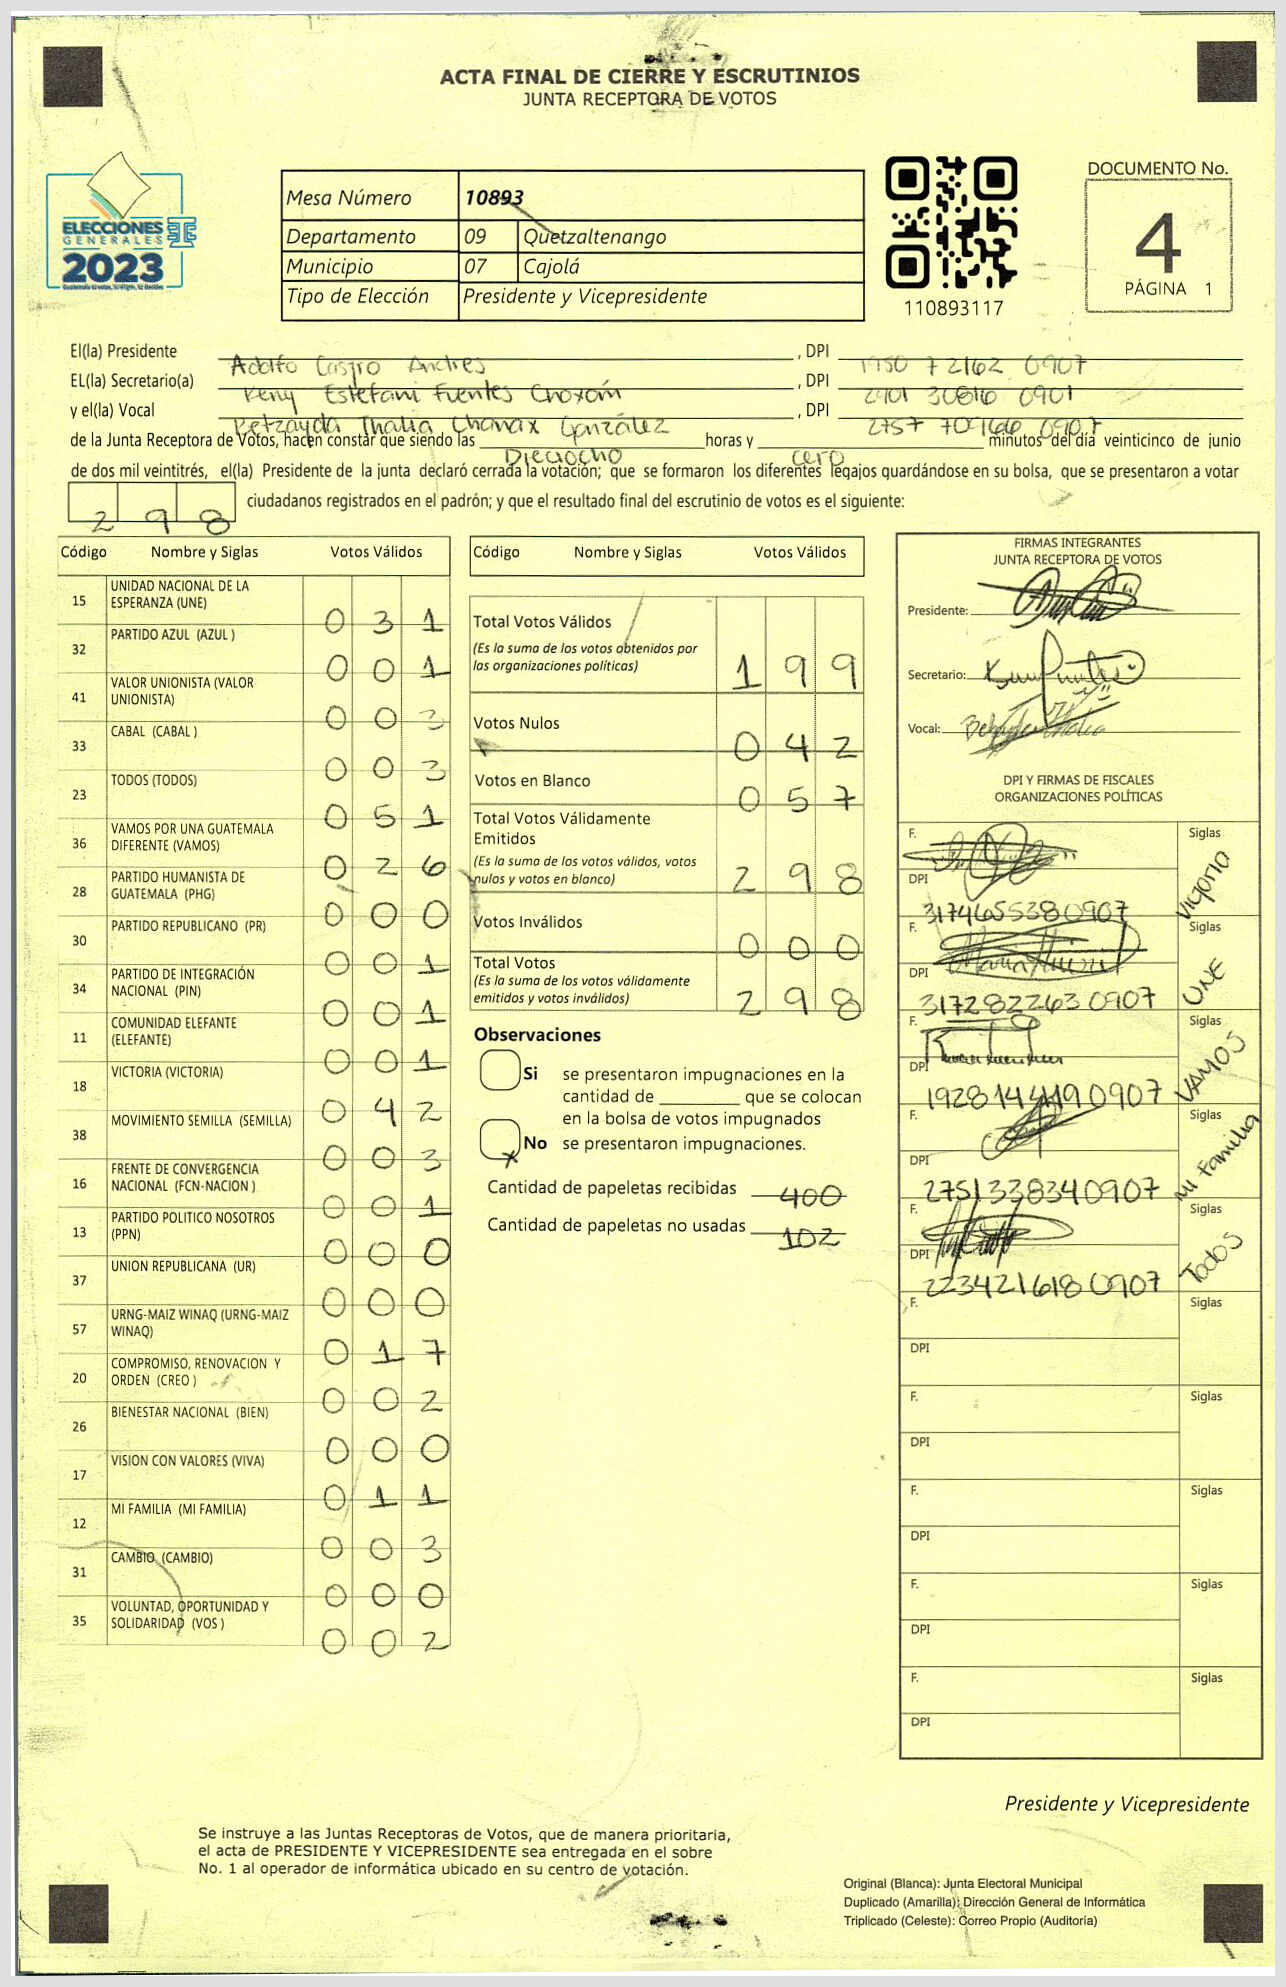 ACTA FINAL DE CIERRE Y ESCRUTINIOS
JUNTA RECEPTORA DE VOTOS
ELECCIONES
GENERALES
2023
Mesa Número 10893
Departamento 09 Quetzaltenango
Municipio 07 Cajolá
Tipo de Elección Presidente y Vicepresidente
110893117
DOCUMENTO No.
4
PÁGINA 1
El(la) Presidente Adolfo Castro Andres, DPI 1950 72162 0907
EL(la) Secretario(a) Keny Estefani Fuentes Choxom, DPI 2901 30816 0901
y el(la) Vocal Betzayda Thalia Chanax González, DPI 2757 709166 0907
de la Junta Receptora de Votos, hacen constar que siendo las Dieciocho horas y cero minutos del día veinticinco de junio
de dos mil veintitrés, el(la) Presidente de la junta declaró cerrada la votación; que se formaron los diferentes legajos guardándose en su bolsa, que se presentaron a votar
298 ciudadanos registrados en el padrón; y que el resultado final del escrutinio de votos es el siguiente:
Código Nombre y Siglas Votos Válidos
15 UNIDAD NACIONAL DE LA ESPERANZA (UNE) 0 3 1
32 PARTIDO AZUL (AZUL ) 0 0 1
41 VALOR UNIONISTA (VALOR UNIONISTA) 0 0 3
33 CABAL (CABAL ) 0 0 3
23 TODOS (TODOS) 0 5 1
36 VAMOS POR UNA GUATEMALA DIFERENTE (VAMOS) 0 2 6
28 PARTIDO HUMANISTA DE GUATEMALA (PHG) 0 0 0
30 PARTIDO REPUBLICANO (PR) 0 0 1
34 PARTIDO DE INTEGRACIÓN NACIONAL (PIN) 0 0 1
11 COMUNIDAD ELEFANTE (ELEFANTE) 0 0 1
18 VICTORIA (VICTORIA) 0 4 2
38 MOVIMIENTO SEMILLA (SEMILLA) 0 0 3
16 FRENTE DE CONVERGENCIA NACIONAL (FCN-NACION ) 0 0 1
13 PARTIDO POLITICO NOSOTROS (PPN) 0 0 0
37 UNION REPUBLICANA (UR) 0 0 0
57 URNG-MAIZ WINAQ (URNG-MAIZ WINAQ) 0 1 7
20 COMPROMISO, RENOVACION Y ORDEN (CREO ) 0 0 2
26 BIENESTAR NACIONAL (BIEN) 0 0 0
17 VISION CON VALORES (VIVA) 0 1 1
12 MI FAMILIA (MI FAMILIA) 0 0 3
31 CAMBIO (CAMBIO) 0 0 0
35 VOLUNTAD, OPORTUNIDAD Y SOLIDARIDAD (VOS ) 0 0 2
Código Nombre y Siglas Votos Válidos
Total Votos Válidos 1 9 9
(Es la suma de los votos obtenidos por
las organizaciones políticas)
Votos Nulos 0 4 2
Votos en Blanco 0 5 7
Total Votos Válidamente
Emitidos 2 9 8
(Es la suma de los votos válidos, votos
nulos y votos en blanco)
Votos Inválidos 0 0 0
Total Votos 2 9 8
(Es la suma de los votos válidamente
emitidos y votos inválidos)
Observaciones
Si se presentaron impugnaciones en la
cantidad de ________ que se colocan
en la bolsa de votos impugnados
x No se presentaron impugnaciones.
Cantidad de papeletas recibidas 400
Cantidad de papeletas no usadas 102
FIRMAS INTEGRANTES
JUNTA RECEPTORA DE VOTOS
Presidente:
Secretario:
Vocal:
DPI Y FIRMAS DE FISCALES
ORGANIZACIONES POLÍTICAS
F. Siglas Victoria
DPI 3174655380907
F. Siglas UNE
DPI 3172822630907
F. Siglas VAMOS
DPI 1928144190907
F. Siglas Mi Familia
DPI 2751338340907
F. Siglas Todos
DPI 2234216180907
F. Siglas
DPI
F. Siglas
DPI
F. Siglas
DPI
F. Siglas
DPI
F. Siglas
DPI
Presidente y Vicepresidente
Se instruye a las Juntas Receptoras de Votos, que de manera prioritaria,
el acta de PRESIDENTE Y VICEPRESIDENTE sea entregada en el sobre
No. 1 al operador de informática ubicado en su centro de votación.
Original (Blanca): Junta Electoral Municipal
Duplicado (Amarilla): Dirección General de Informática
Triplicado (Celeste): Correo Propio (Auditoría)